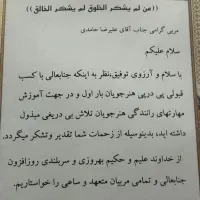 ((من لم یشکر المخلوق لم یشکر الخالق))
مربی گرامی جناب آقای علیرضا حامدی
سلام علیکم
با سلام و آرزوی توفیق،نظر به اینکه جنابعالی با کسب
قبولی پی درپی هنرجویان بار اول و در جهت آموزش
مهارتهای رانندگی هنرجویان تلاش بی دریغی مبذول
داشته اید، بدینوسیله از زحمات شما تقدیر وتشکر میگردد.
از خداوند علیم و حکیم بهروزی و سربلندی روزافزون
جنابعالی و تمامی مربیان متعهد و ساعی را خواستاریم.